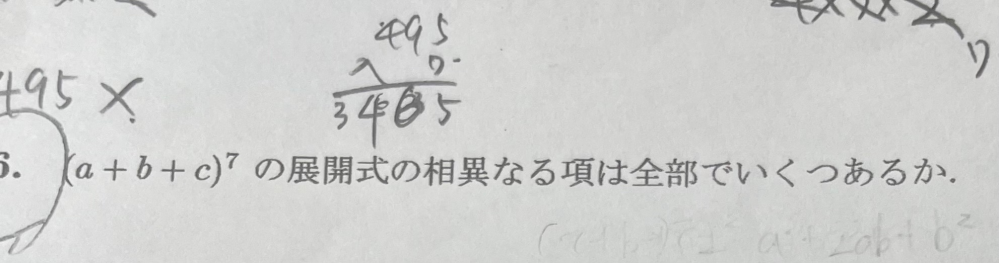 495
× 7
495 ×
3465
6. (a + b + c)⁷ の展開式の相異なる項は全部でいくつあるか.
a² + 2ab + b²